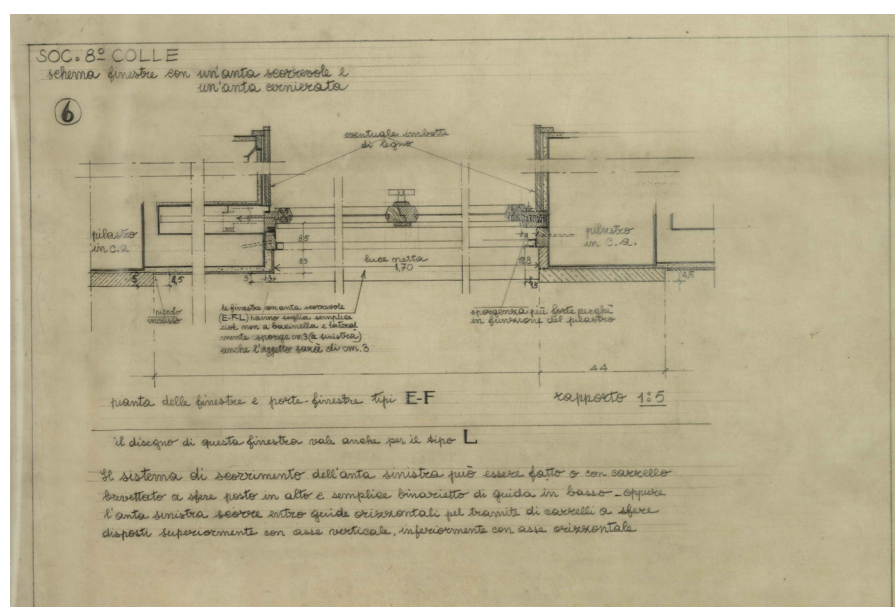 SOC. 8º COLLE
schema finestre con un'anta scorrevole e
un'anta cernierata
6
eventuale imbotte
di legno
pilastro
in c.a.
pilastro
in c.a.
8,5
luce netta
1,70
5
1,5
piccolo
incasso
le finestre con anta scorrevole
(E-F-L) hanno soglia semplice
cioè non a bacinella e lateral
mente sporge cm 3 (a sinistra)
anche l'aggetto sarà di cm. 3
sporgenza più forte perchè
in funzione del pilastro
44
pianta delle finestre e porte-finestre tipi E-F
rapporto 1:5
il disegno di questa finestra vale anche per il tipo L
Il sistema di scorrimento dell'anta sinistra può essere fatto o con carrello
brevettato a sfere posto in alto e semplice binarietto di guida in basso - oppure
l'anta sinistra scorre entro guide orizzontali pel tramite di carrelli a sfere
disposti superiormente con asse verticale, inferiormente con asse orizzontale